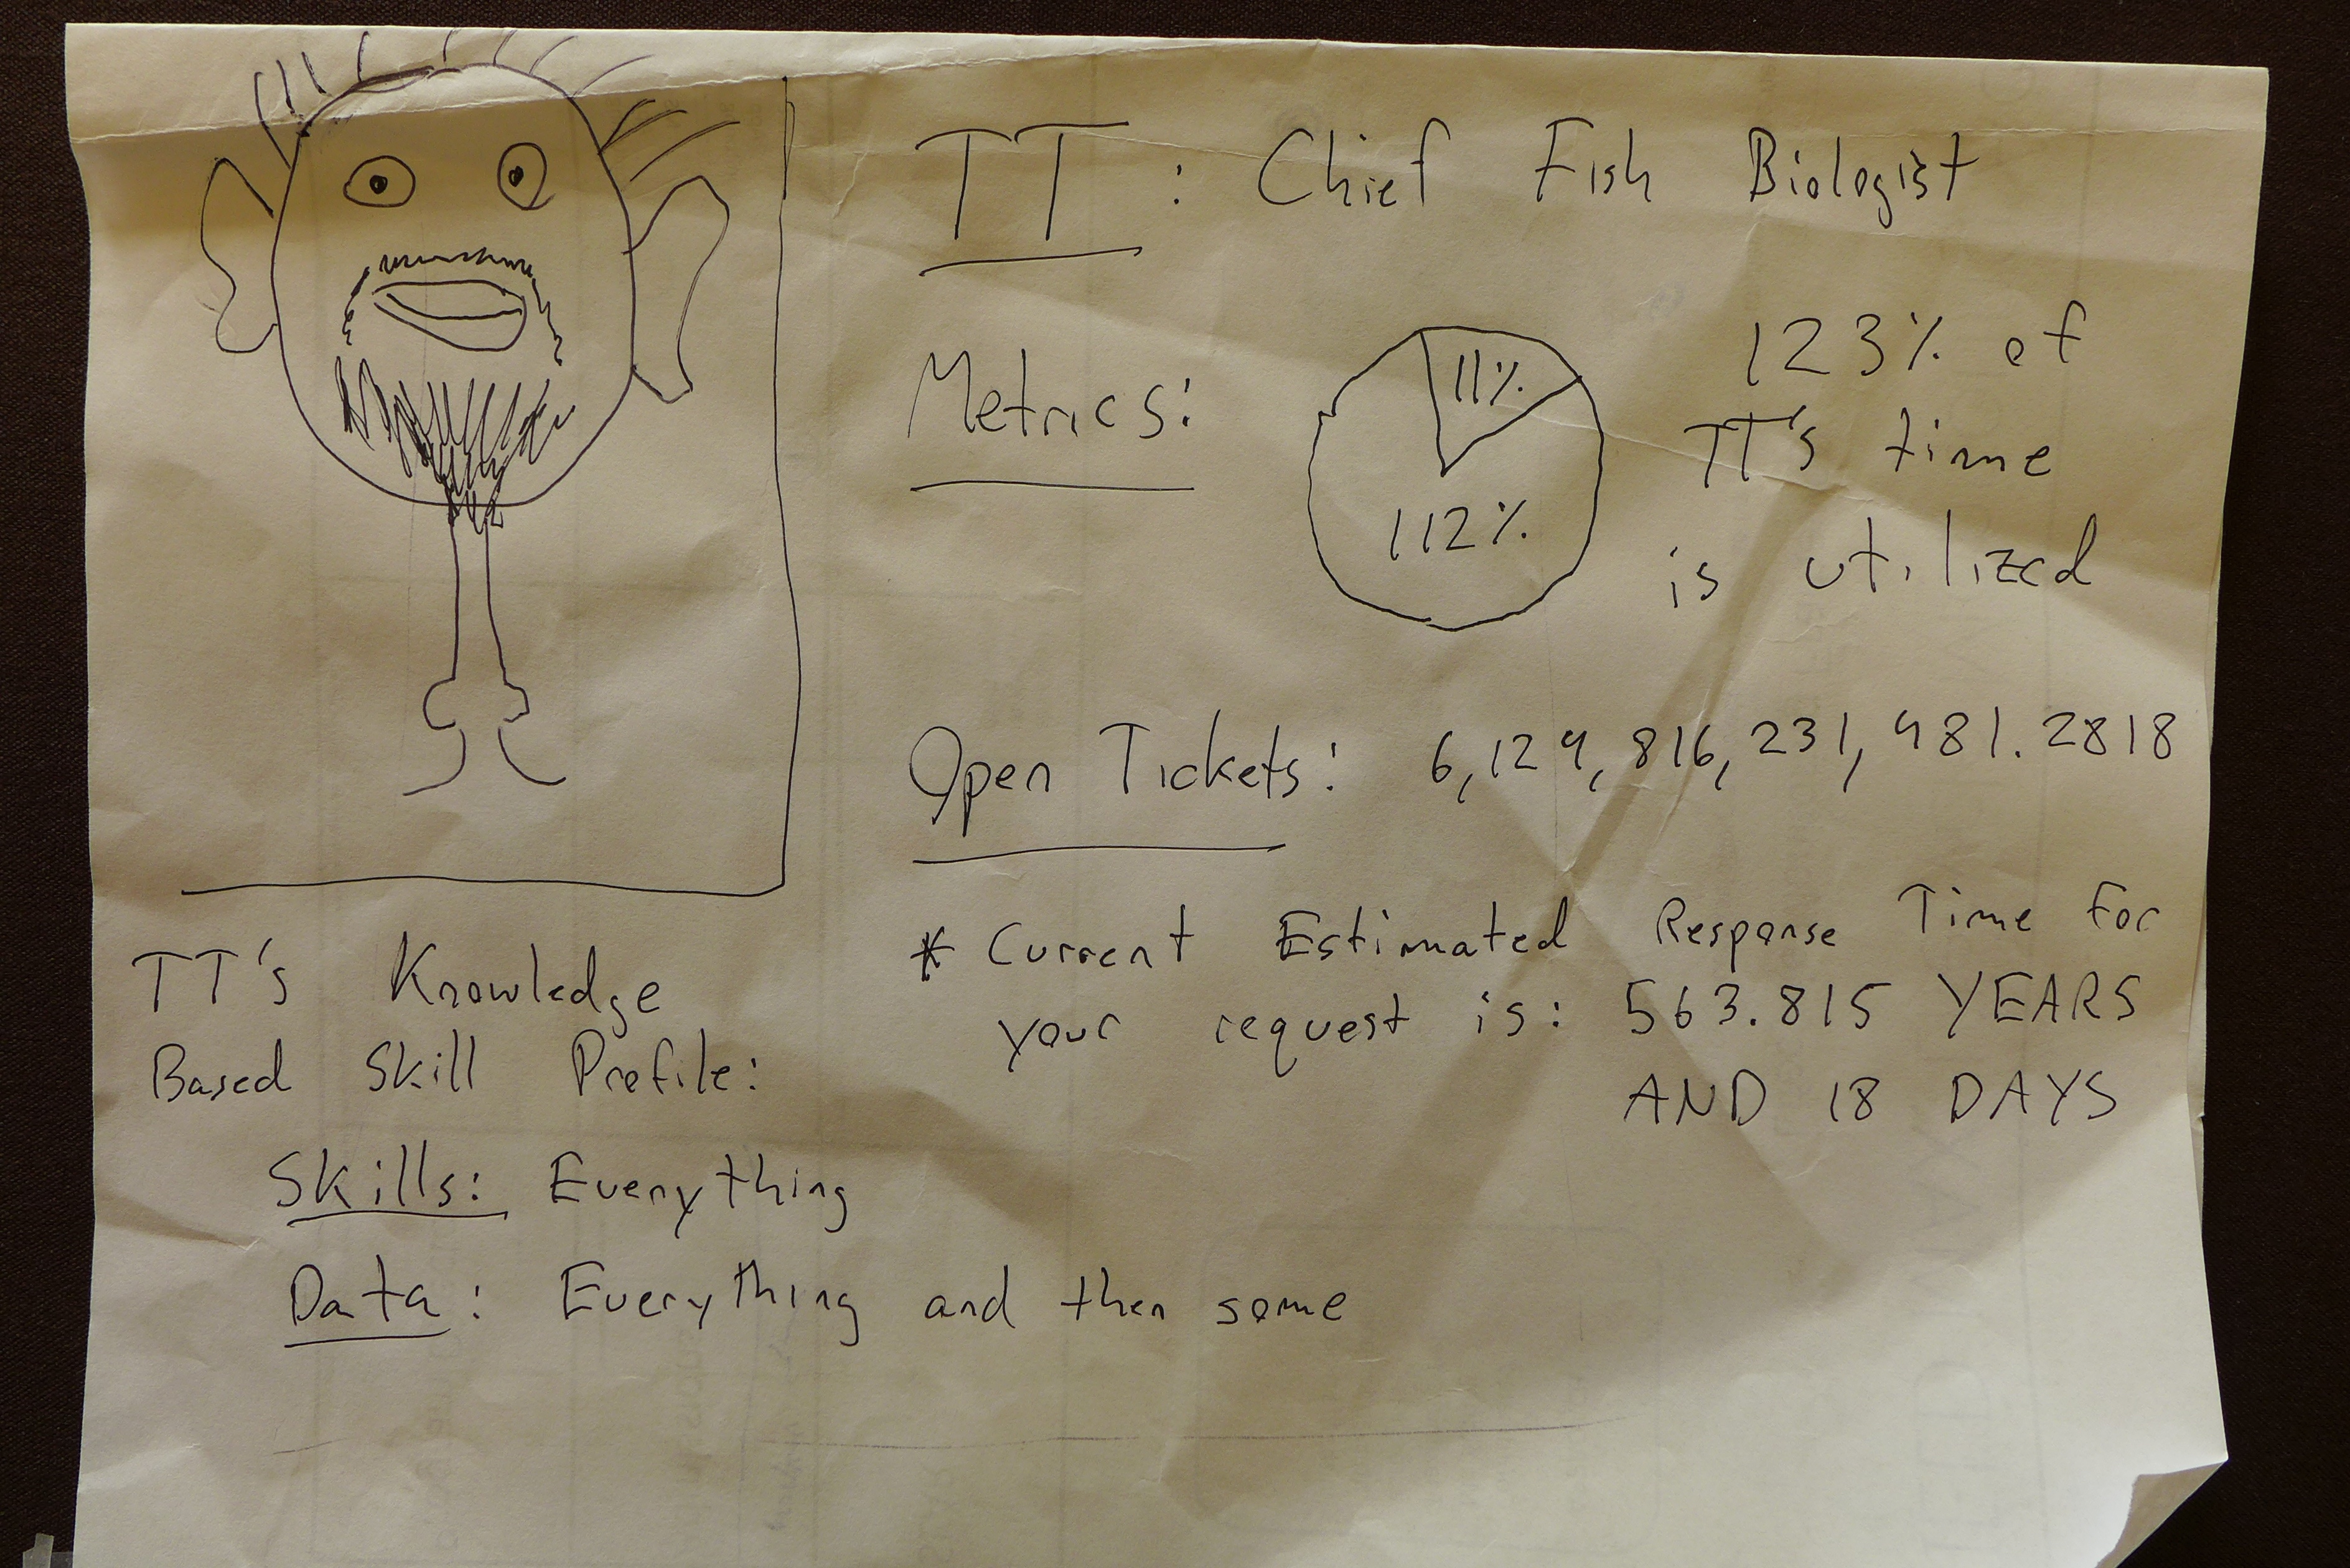 TT: Chief Fish Biologist
Metrics:
11%
112%
123% of
TT's time
is utilized
Open Tickets: 6,129,816,231,981.2818
* Current Estimated Response Time for
your request is: 563.815 YEARS
AND 18 DAYS
TT's Knowledge
Based Skill Profile:
Skills: Everything
Data: Everything and then some